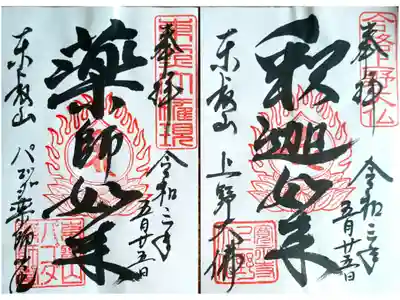 奉拝
令和三年
五月廿五日
薬師如来
東叡山
パゴダ薬師堂
奉拝
令和三年
五月廿五日
釈迦如来
東叡山
上野大佛